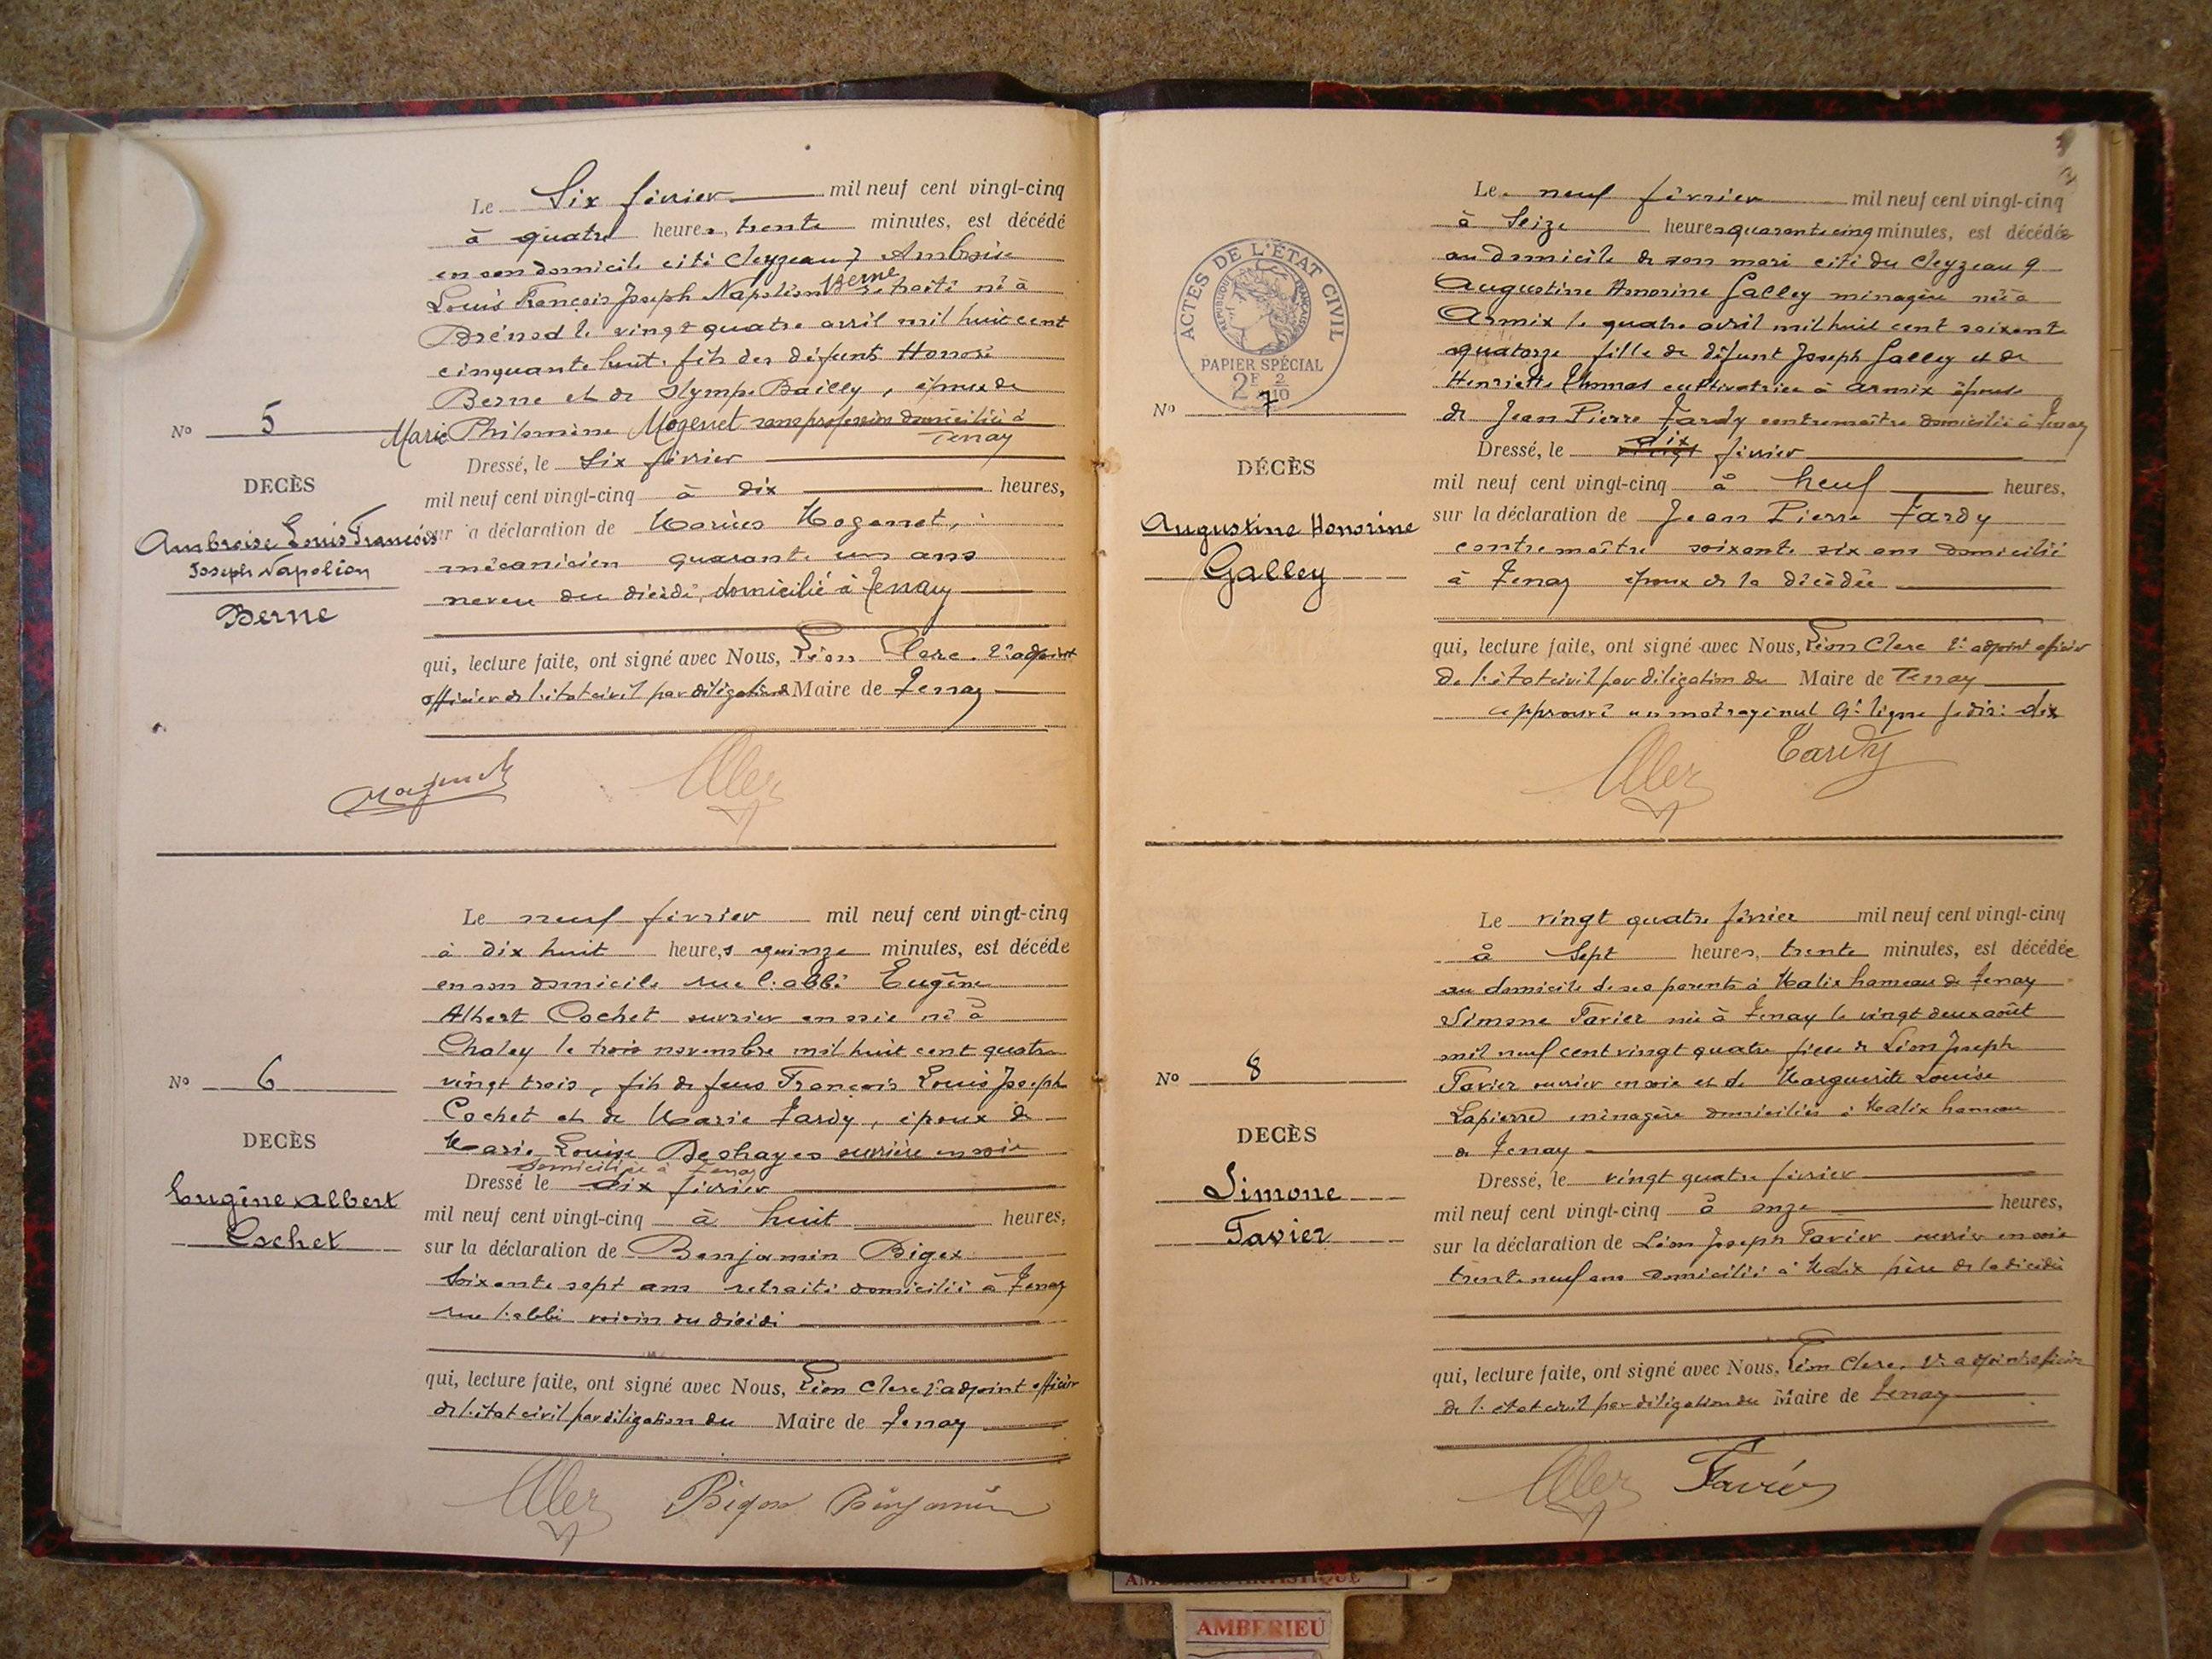 Le Six février mil neuf cent vingt-cinq
à quatre heures, trente minutes, est décédé
en son domicile cité Cleyzeau 7 Ambroise
Louis François Joseph Napoléon Berne retraité né à
Brénod le vingt quatre avril mil huit cent
cinquante huit. fils des défunts Honoré
Berne et de Olympe Bailly, époux de
Marie Philomène Mogenet sans profession domiciliée à
Tenay
Dressé, le Six février
mil neuf cent vingt-cinq à dix heures,
sur la déclaration de Marius Mogenet,
mécanicien quarante un ans
neveu du décédé, domicilié à Tenay
qui, lecture faite, ont signé avec Nous, Léon Clerc. 2e adjoint
officier de l'état civil par délégation du Maire de Tenay
No 5
DECÈS
Ambroise Louis François
Joseph Napoléon
Berne
Le neuf février mil neuf cent vingt-cinq
à dix huit heures quinze minutes, est décédé
en son domicile rue l'abbé Eugène
Albert Cochet ouvrier en soie né à
Chaley le trois novembre mil huit cent quatre
vingt trois, fils de feus François Louis Joseph
Cochet et de Marie Tardy, époux de
Marie Louise Deshayes ouvrière en soie
domiciliée à Tenay
Dressé le dix février
mil neuf cent vingt-cinq à huit heures,
sur la déclaration de Benjamin Bigex
soixante sept ans retraité domicilié à Tenay
rue l'abbé voisin du décédé
qui, lecture faite, ont signé avec Nous, Léon Clerc 2e adjoint officier
de l'état civil par délégation du Maire de Tenay
Bigex Benjamin
No 6
DECÈS
Eugène Albert
Cochet
Le neuf février mil neuf cent vingt-cinq
à Seize heures quarante cinq minutes, est décédée
au domicile de son mari cité du Cleyzeau 9
Augustine Honorine Galley ménagère née à
Armix le quatre avril mil huit cent soixante
quatorze fille de défunt Joseph Galley et de
Henriette Thomas cultivatrice à Armix épouse
de Jean Pierre Tardy contremaître domicilié à Tenay
dix
Dressé, le vingt février
mil neuf cent vingt-cinq à neuf heures,
sur la déclaration de Jean Pierre Tardy
contremaître soixante six ans domicilié
à Tenay époux de la décédée
qui, lecture faite, ont signé avec Nous, Léon Clerc 2e adjoint officier
de l'état civil par délégation du Maire de Tenay
approuvé un mot rayé nul 9e ligne je dis: dix
Tardy
ACTES DE L'ÉTAT CIVIL
RÉPUBLIQUE FRANÇAISE
PAPIER SPÉCIAL
2F 2/10
No 7
DÉCÈS
Augustine Honorine
Galley
Le vingt quatre février mil neuf cent vingt-cinq
à Sept heures, trente minutes, est décédée
au domicile de ses parents à Malix hameau de Tenay
Simone Favier née à Tenay le vingt deux août
mil neuf cent vingt quatre fille de Léon Joseph
Favier ouvrier en soie et de Marguerite Louise
Lapierre ménagère domiciliés à Malix hameau
de Tenay
Dressé, le vingt quatre février
mil neuf cent vingt-cinq à onze heures,
sur la déclaration de Léon Joseph Favier ouvrier en soie
trente neuf ans domicilié à Malix père de la décédée
qui, lecture faite, ont signé avec Nous, Léon Clerc, 2e adjoint officier
de l'état civil par délégation du Maire de Tenay
Favier
No 8
DECÈS
Simone
Favier
AMBERIEU